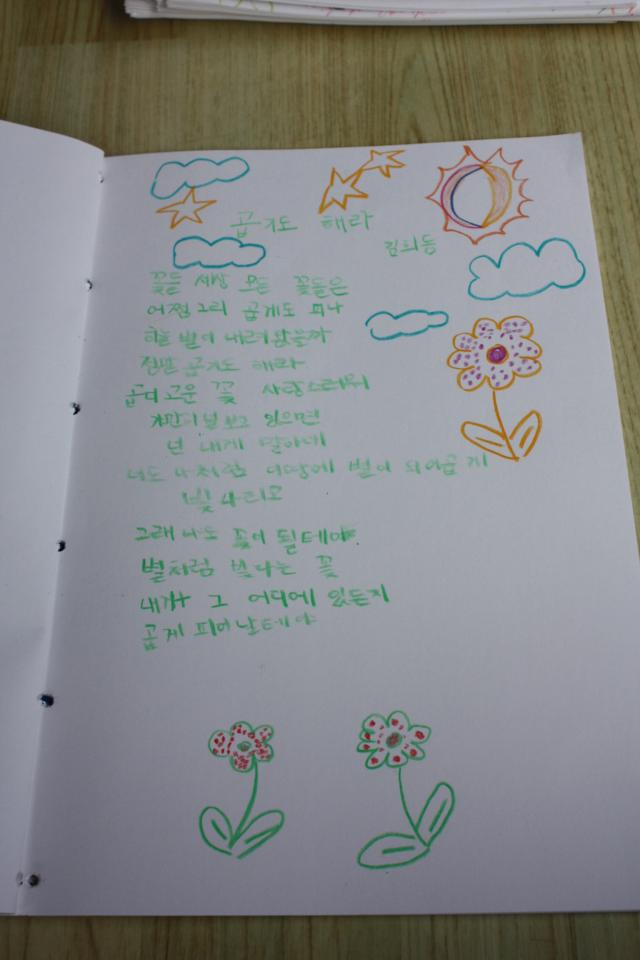 곱기도 해라
김희동
꽃들 세상 모든 꽃들은
어쩜 그리 곱게도 피나
하늘 별이 내려 왔을까
정말 곱기도 해라
곱디 고운 꽃 사랑스러워
가만히 널 보고 있으면
넌 내게 말하네
너도 나처럼 이땅에 별이 되어곱게
빛나라고
그래 나도 꽃이 될테야
별처럼 빛나는 꽃
내가 그 어디에 있든지
곱게 피어날테야